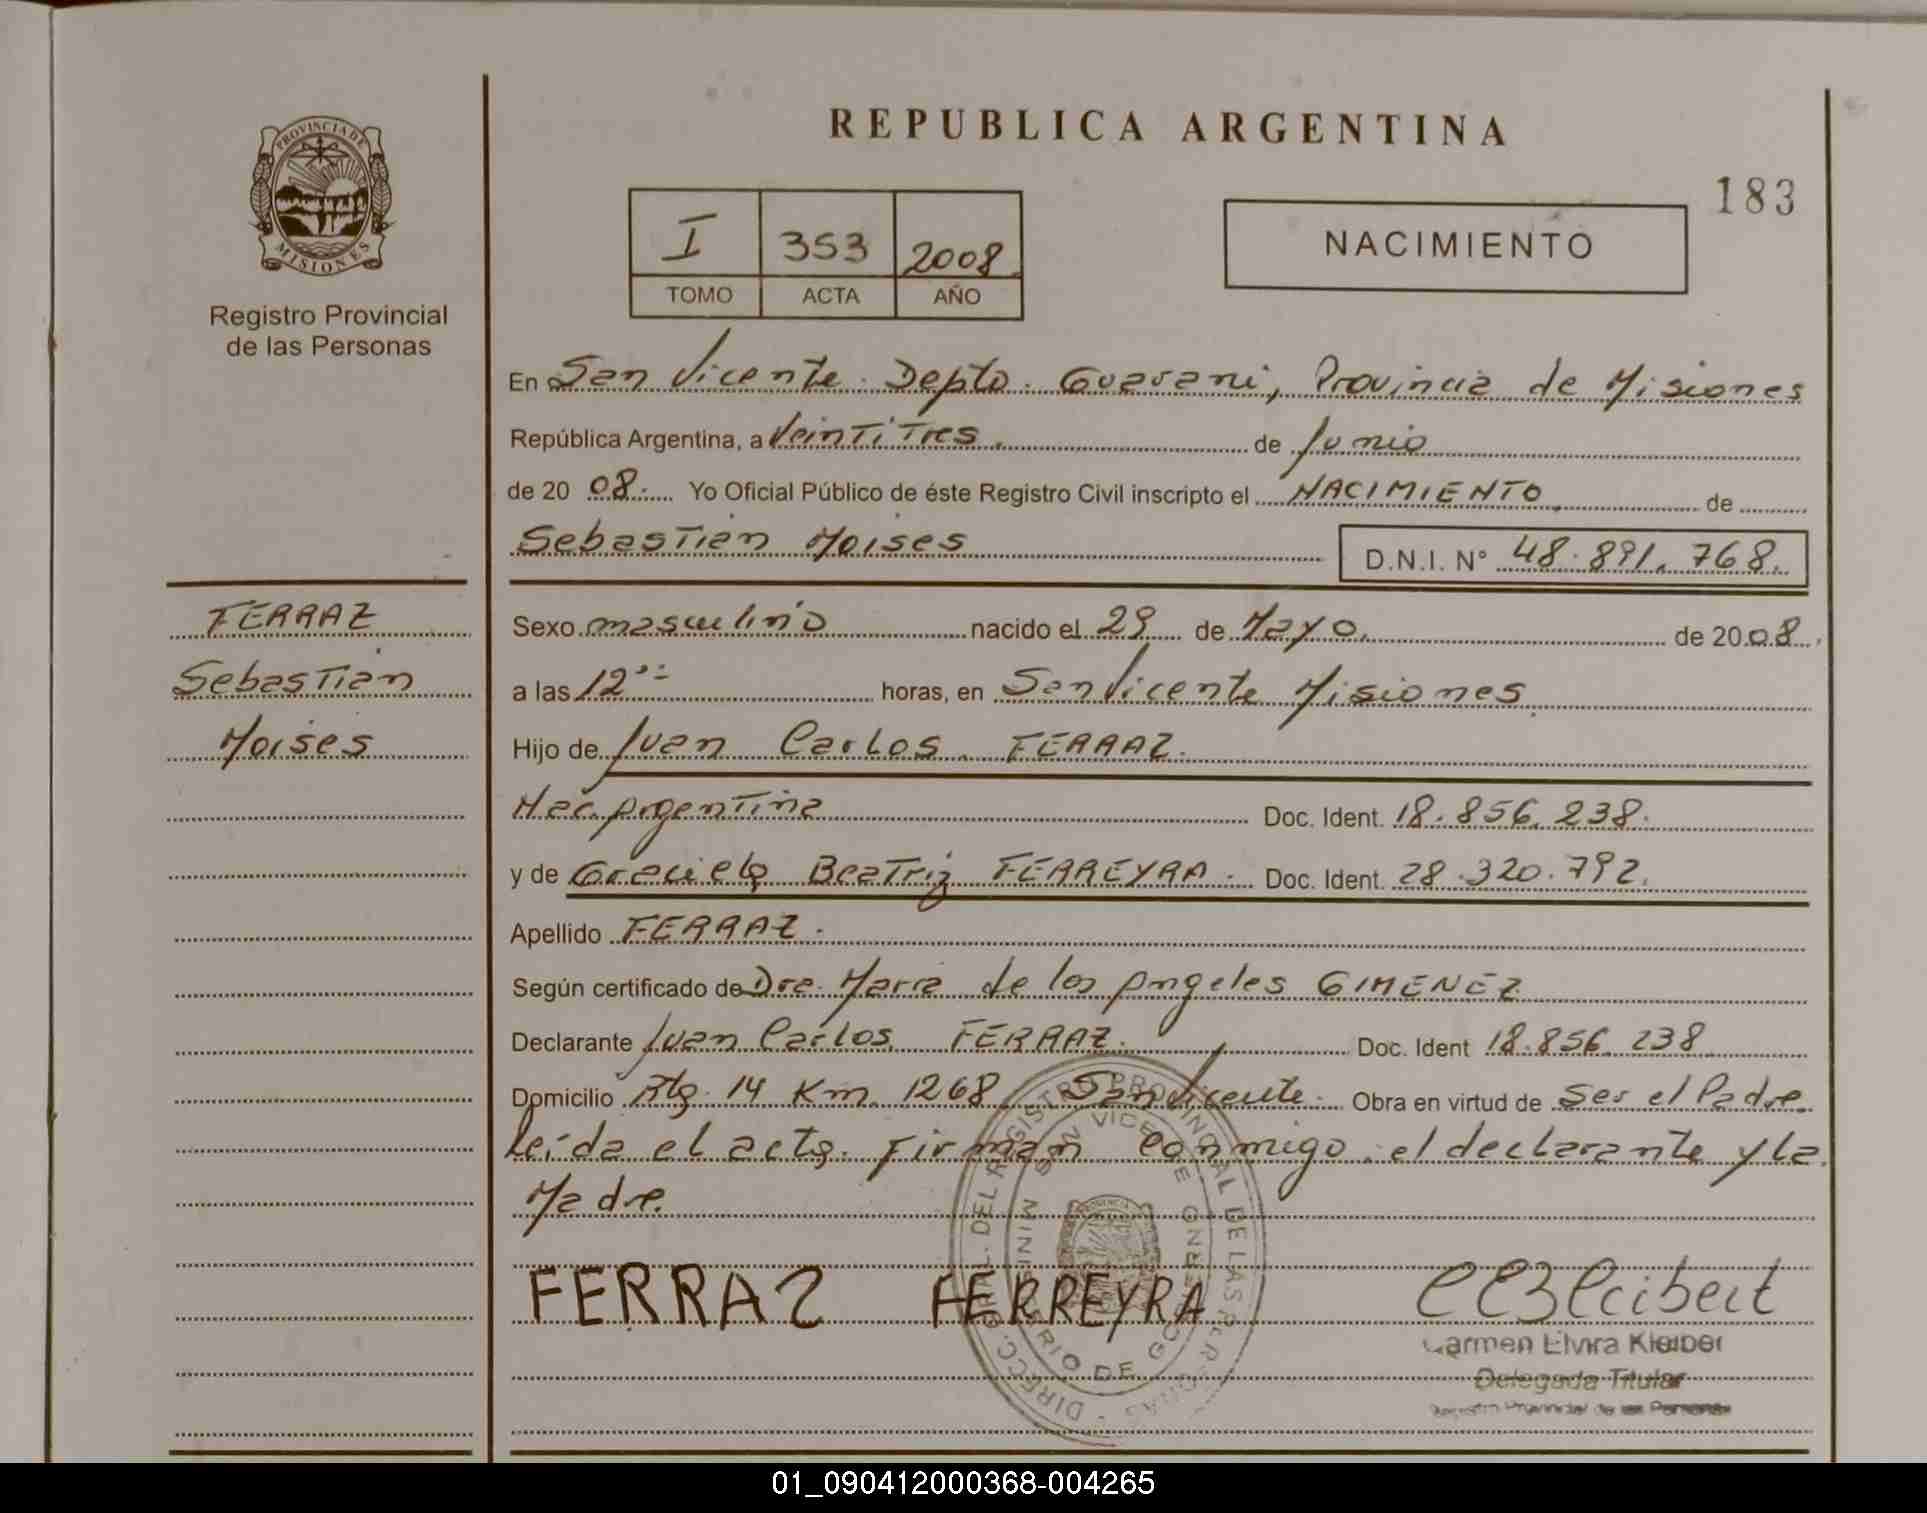 REPUBLICA ARGENTINA
183
PROVINCIA DE MISIONES
Registro Provincial
de las Personas
I 353 2008
TOMO ACTA AÑO
NACIMIENTO
En San Vicente. Depto. Guarani, Provincia de Misiones
República Argentina, a Veintitres. de Junio
de 20 08. Yo Oficial Público de éste Registro Civil inscripto el NACIMIENTO de
Sebastian Moises D.N.I. N° 48.891.768.
FERRAZ
Sebastian
Moises
Sexo masculino nacido el 29 de Mayo. de 20 08.
a las 12 horas, en San Vicente Misiones
Hijo de Juan Carlos. FERRAZ.
Nac. Argentina Doc. Ident. 18.856.238.
y de Graciela Beatriz FERREYRA. Doc. Ident. 28.320.792.
Apellido FERRAZ.
Según certificado de Dra. Maria de los Angeles GIMENEZ
Declarante Juan Carlos FERRAZ. Doc. Ident 18.856.238
Domicilio Rta. 14 Km. 1268. San Vicente. Obra en virtud de Ser el Padre.
Leída el acta. Firman conmigo. el declarante y la
Madre.
FERRAZ FERREYRA
DIRECC. GRAL. DEL REGISTRO PROVINCIAL DE LAS PERSONAS
SAN VICENTE
MINISTERIO DE GOBIERNO
Carmen Elvira Kleiber
Delegada Titular
Registro Provincial de las Personas
01_090412000368-004265